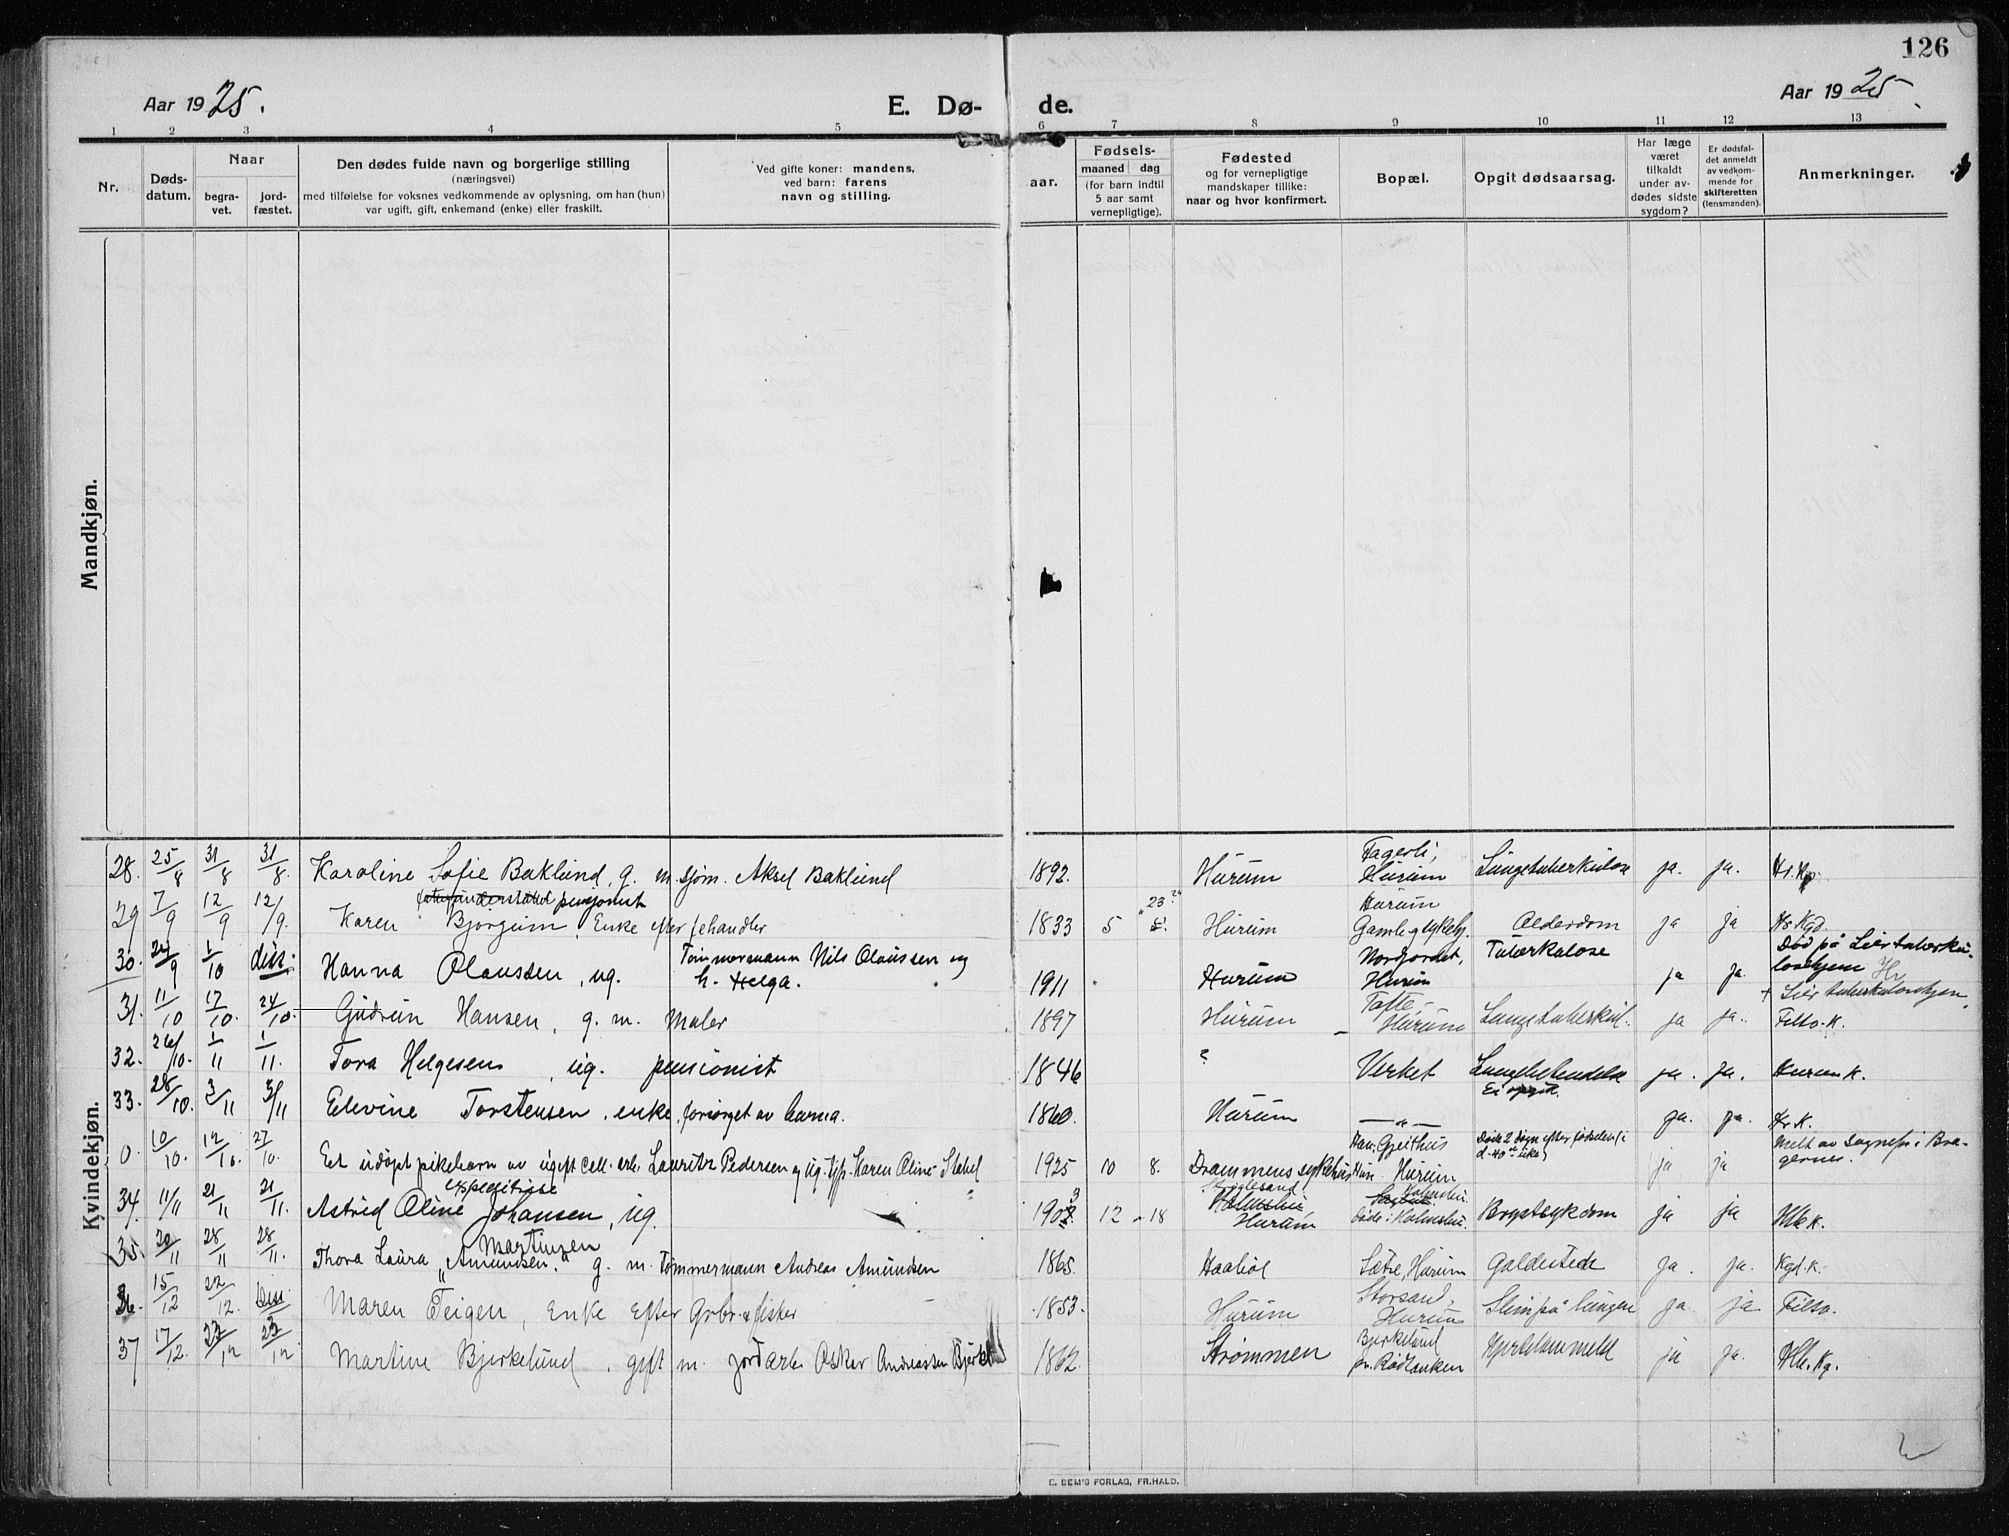 126
Aar 1925. E. Dø- de. Aar 1925.
1 2 3 4 5 6 7 8 9 10 11 12 13
Nr. Døds-datum. Naar begra-vet. jord-fæstet. Den dødes fulde navn og borgerlige stilling (næringsvei) med tilføielse for voksnes vedkommende av oplysning, om han (hun) var ugift, gift, enkemand (enke) eller fraskilt. Ved gifte koner: mandens, ved barn: farens navn og stilling. aar. Fødsels- maaned dag (for barn indtil 5 aar samt vernepligtige). Fødested og for vernepligtige mandskaper tillike: naar og hvor konfirmert. Bopæl. Opgit dødsaarsag. Har læge været tilkaldt under av-dødes sidste sygdom? Er dødsfal-det anmeldt av vedkom-mende for skifteretten (lensmanden). Anmerkninger.
Mandkjøn.
Kvindekjøn.
28. 25/8 31/8 31/8. Karoline Sofie Baklund, g. m. sjøm. Aksel Baklund 1892. Hurum Fagerli, Hurum Lungetuberkulose ja. ja. Hr. K.
29 7/9 12/9 12/9. pensjonist Karen Bjørgum, Enke efter fehandler 1833 5 23 Hurum Hurum Gamle Alderdom ja ja Hr. Kgd.
30. 24/9 1/10 dito Hanna Olaussen, ug. Tømmermann Nils Olaussen og h. Helga. 1911 Hurum Nordjordet, Hurum Tuberkulose ja ja. Død på Lier tuberkuloschjem Hr
31. 11/10 17/10. 24/10. Gudrun Hansen, g. m. Maler 1897 Hurum Tofte, Hurum Lungetuberkul. ja ja. + Lier tuberkuloschjem. Filtv. K.
32. 26/10. 1/11 1/11. Tora Helgesen, ug. pensionist 1846 ? Verket ja. ja. Hurum K.
33. 28/10. 3/11 3/11 Elevine Torstensen, enke, forsørget av barna. 1860. Hurum — " — Ei opgit. ja. ja. Hr. K.
0. 10/10. 12/10. 27/10. Et udøpt pikebarn av ugift cell. arb. Lauritz Pedersen og ug. Karen Oline Stabel 1925 10 8. Drammens sykehus Han: Gjeithus Hun Hurum Døde 2 døgn efter fødselen (i d. 40de uke) ja ja Meldt av sognepr. i Bragernes.
34. 11/11 21/11 21/11. Astrid Oline Johansen, ug. expeditrise 1903 12 18 Holmsbu, Hurum Døde i Holmsbu. Brystsykdom ja ja Hlb. k.
35. 20/11 28/11 28/11. Thora Laura "Amundsen" Martinsen g. m. Tømmermann Andreas Amundsen 1865. Haabøl Sætre, Hurum Galdestede ja. ja. Kgd. K.
36. 15/12 22/12. Maren Teigen, Enke efter Grbr. & fisker 1853. Hurum Storsand, Hurum Slim på lungen ja. ja Filtv.
37 17/12. 23/12 23/12 Martine Bjerkelund, gift m. jordarb. Oskar Andreassen Bjerkel 1862 Strømmen Bjerkelund pr. Rødtangen ja ja. Hlb. Kg.
E. SEM'S FORLAG, FR.HALD.